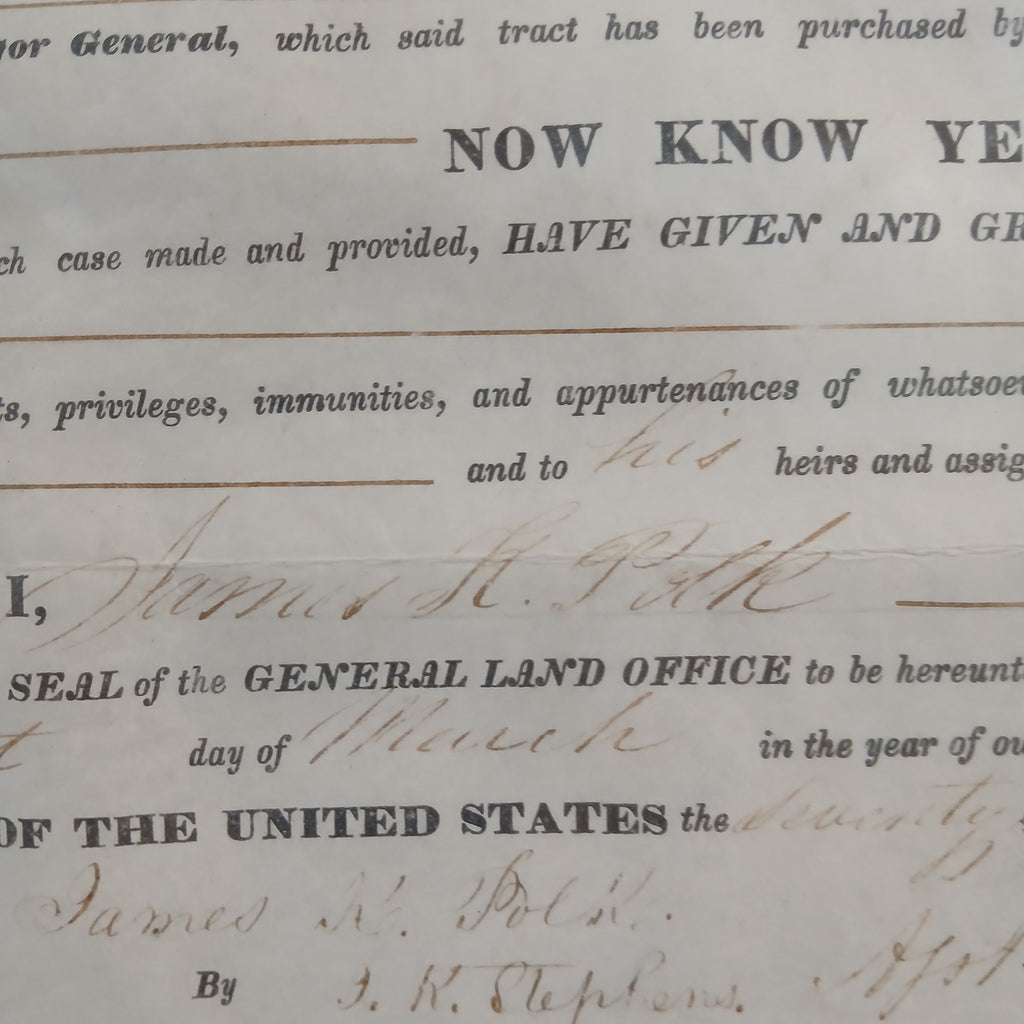 or General, which said tract has been purchased by
NOW KNOW YE
ch case made and provided, HAVE GIVEN AND GR
ts, privileges, immunities, and appurtenances of whatsoe
and to his heirs and assig
I, James K. Polk
SEAL of the GENERAL LAND OFFICE to be hereunt
t day of March in the year of ou
OF THE UNITED STATES the Seventy
James K. Polk.
By J. K. Stephens. Asst